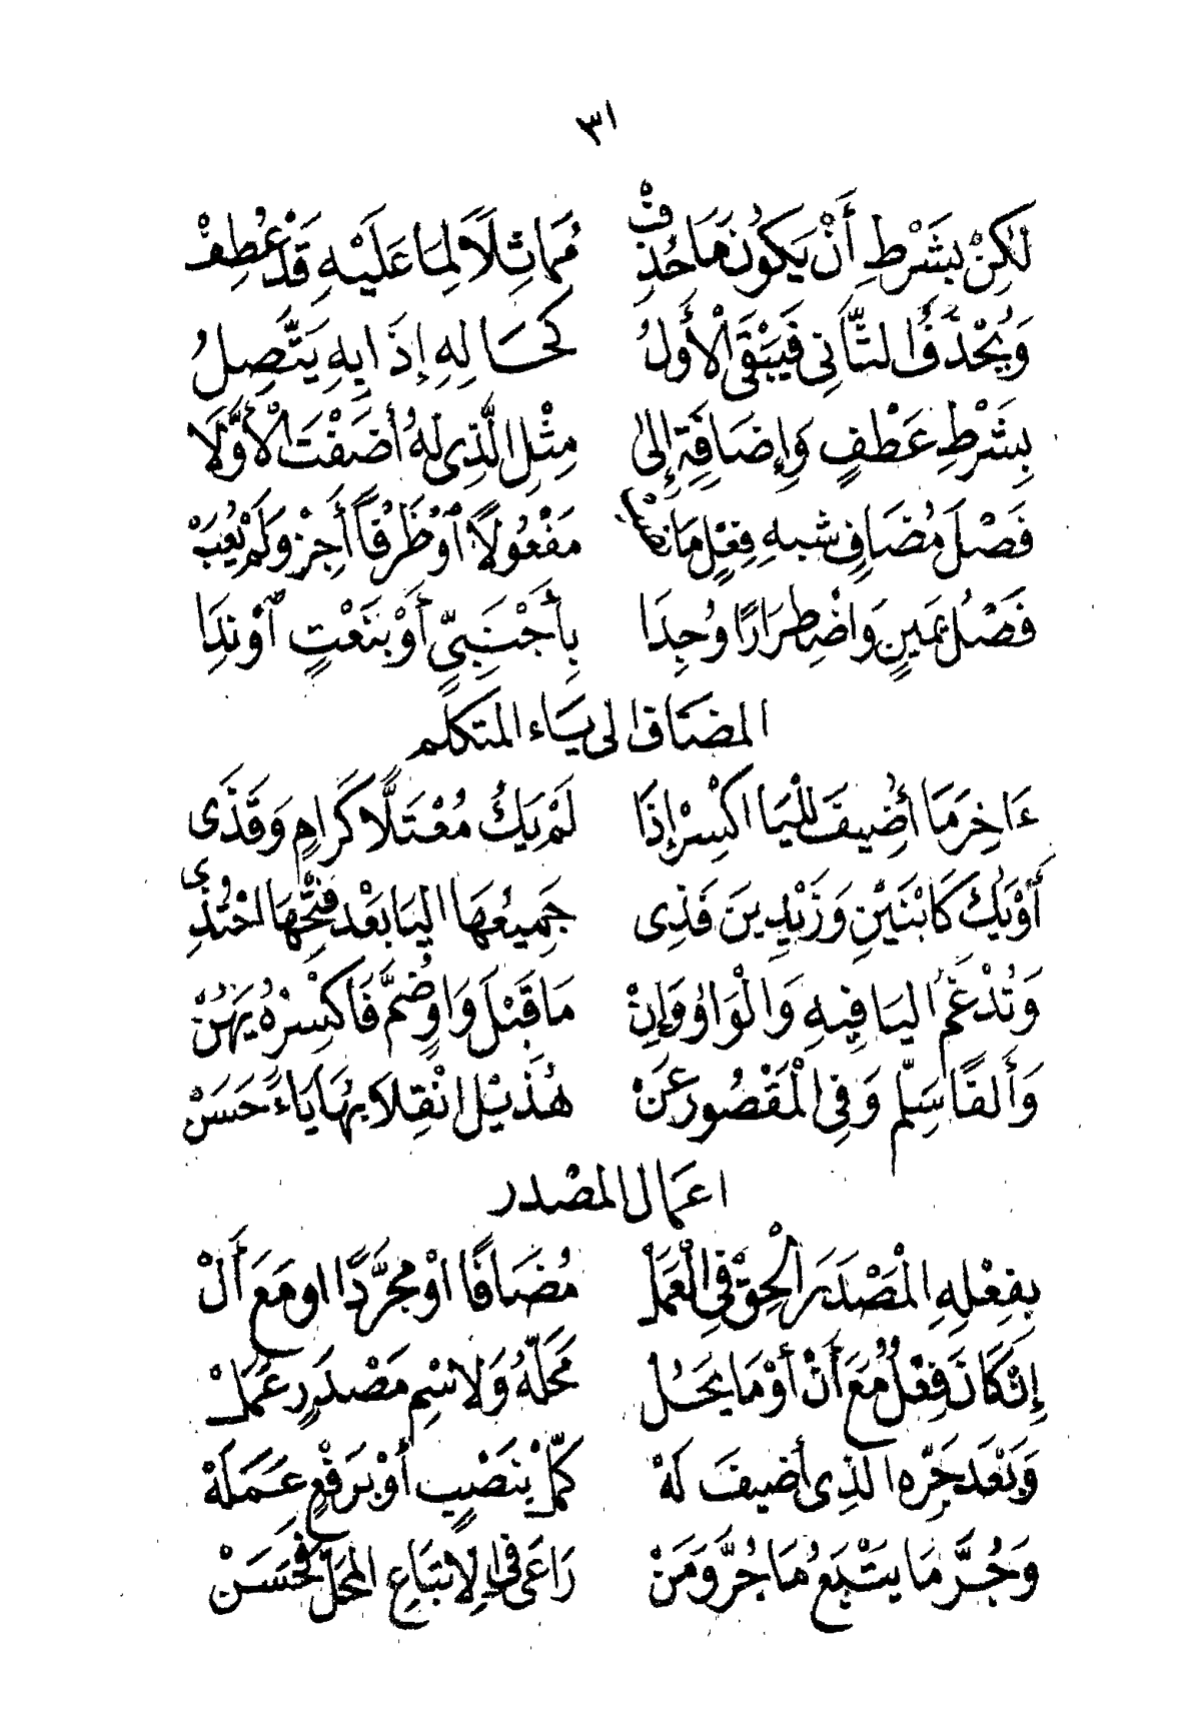 ٣١
لٰكِنْ بِشَرْطِ أَنْ يَكُونَ مَا حُذِفْ مُمَاثِلًا لِمَا عَلَيْهِ قَدْ عُطِفْ
وَيُحْذَفُ الثَّانِي فَيَبْقَى الْأَوَّلُ كَحَالِهِ إِذَا بِهِ يَتَّصِلُ
بِشَرْطِ عَطْفٍ وَإِضَافَةٍ إِلَى مِثْلِ الَّذِي لَهُ أَضَفْتَ الْأَوَّلَا
فَصْلَ مُضَافٍ شِبْهِ فِعْلٍ مَا نَصَبْ مَفْعُولًا أَوْ ظَرْفًا أَجِزْ وَلَمْ يُعَبْ
فَصْلُ يَمِينٍ وَاضْطِرَارًا وُجِدَا بِأَجْنَبِيٍّ أَوْ بِنَعْتٍ أَوْ نِدَا
المضاف الى ياء المتكلم
ءَاخِرَ مَا أُضِيفَ لِلْيَا اكْسِرْ إِذَا لَمْ يَكُ مُعْتَلًّا كَرَامٍ وَقَذَى
أَوْ يَكُ كَابْنَيْنِ وَزَيْدِينَ فَذِى جَمِيعُهَا الْيَا بَعْدُ فَتْحُهَا احْتُذِى
وَتُدْغَمُ الْيَا فِيهِ وَالْوَاوُ وَإِنْ مَا قَبْلَ وَاوٍ ضُمَّ فَاكْسِرْهُ يَهُنْ
وَأَلِفًا سَلِّمْ وَفِي الْمَقْصُورِ عَنْ هُذَيْلٍ انْقِلَابُهَا يَاءً حَسَنْ
اعمال المصدر
بِفِعْلِهِ الْمَصْدَرَ أَلْحِقْ فِي الْعَمَلْ مُضَافًا أَوْ مُجَرَّدًا او مَعَ أَلْ
إِنْ كَانَ فِعْلٌ مَعَ أَنْ أَوْ مَا يَحُلْ مَحَلَّهُ وَلِاسْمِ مَصْدَرٍ عَمَلْ
وَبَعْدَ جَرِّهِ الَّذِى أُضِيفَ لَهْ كَمِّلْ بِنَصْبٍ أَوْ بِرَفْعٍ عَمَلَهْ
وَجُرَّ مَا يَتْبَعُ مَا جُرَّ وَمَنْ رَاعَى فِي الِاتْبَاعِ الْمَحَلَّ فَحَسَنْ